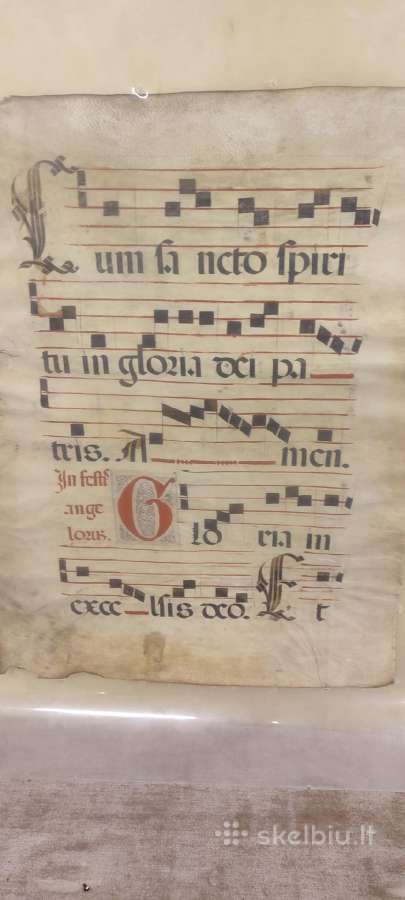 Cum sa ncto spiri
tu in gloria dei pa
tris. A men.
In festis
ange
lorus.
G lo ria in
exce lsis deo. E t
skelbiu.lt